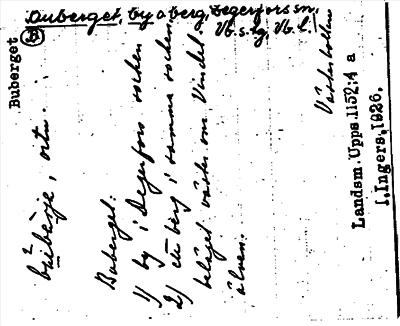 Buberget, by o berg, Degerfors sn,
Vb.s.lg, Vb.l.
Buberget
Västerbotten
bùbèrje, ortn.
Buberget.
1) by i Degerfors socken
2) ett berg i samma socken,
beläget väster om Vindel-
älven.
Landsm.Upps.1152:4 a
I.Ingers.1926.